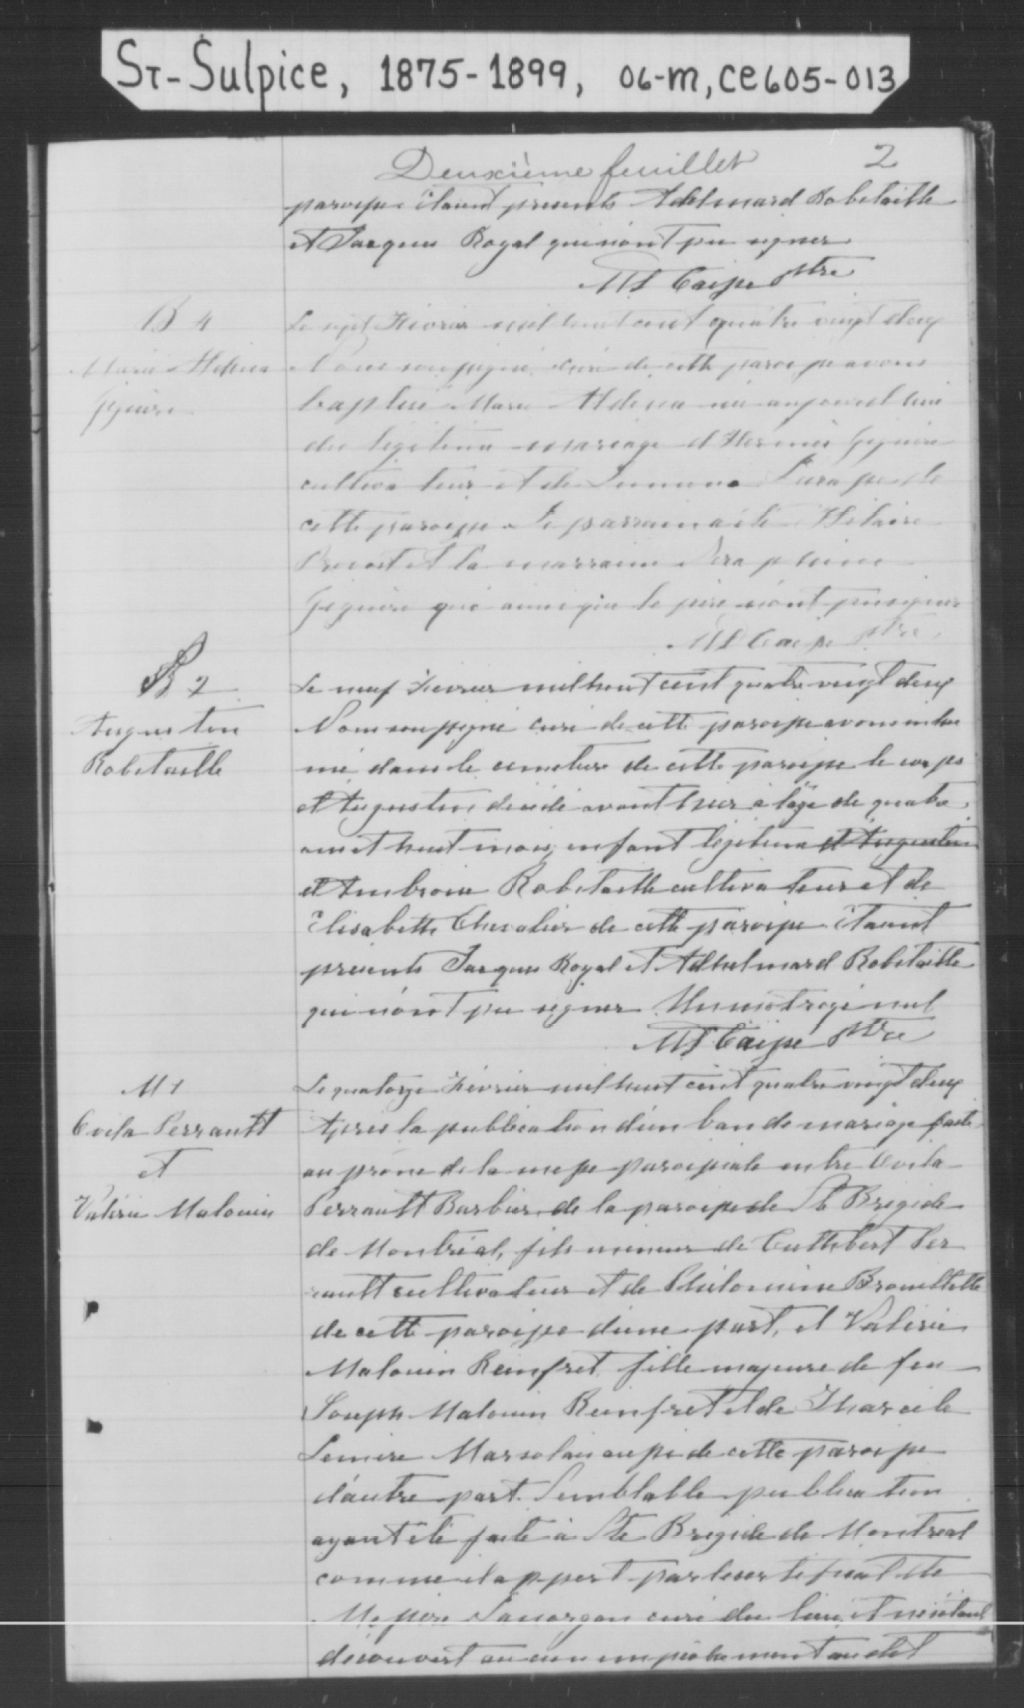 St-Sulpice, 1875-1899, 06-M, CE605-013
Deuxième feuillet 2
paroisse étaient présents Adelmard Robitaille
et Jacques Royal qui n'ont pu signer
Ptre
B 4
Le sept Février mil huit cent quatre vingt deux
Marie
Nous soussigné curé de cette paroisse avons
baptisé Marie née aujourd'hui
du légitime mariage
cultivateur et de de
cette paroisse Le parrain a été Hilaire
et la marraine
qui ainsi que le père n'ont pu signer
Ptre
S 2
Augustin
Robitaille
Le neuf Fevrier mil huit cent quatre vingt deux
Nous soussigné curé de cette paroisse avons inhu
mé dans le cimetiere de cette paroisse le corps
d'Augustin décédé avant hier à l'âge de quatre
ans et huit mois, enfant légitime d'Augustin
d'Ambroise Robitaille cultivateur et de
Elisabette Chevalier de cette paroisse étaient
présents Jacques Royal et Adhelmard Robitaille
qui n'ont pu signer Un mot rayé nul
Ptre
M 1
Perrault
et
Valérie Malouin
Le quatorze Février mil huit cent quatre vingt deux
Après la publication d'un ban de mariage faite
au prône de la messe paroissiale entre
Perrault Barbier de la paroisse de Ste Brigide
de Montréal, fils mineur de Cuthbert Per
rault cultivateur et de Philomène Brouillette
de cette paroisse d'une part, et Valérie
Malouin Reinfret fille majeure de feu
Joseph Malouin Reinfret et de Tharcile
Lemire Marsolais aussi de cette paroisse
d'autre part. Semblable publication
ayant été faite à Ste Brigide de Montréal
comme il appert par le certificat de
Messire curé du lieu, et
découvert aucun empêchement au dit